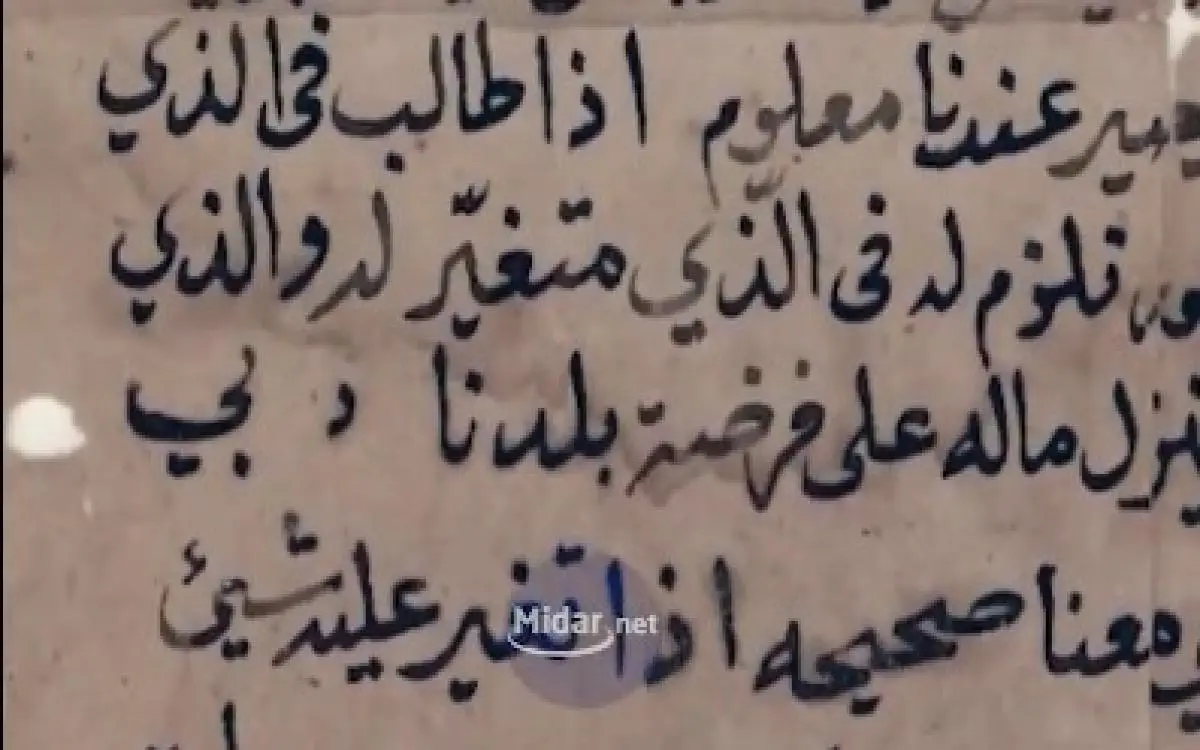 عندنا معلوم اذا طالب في الذي
نلزم له في الّذي متغيّر له والذي
ينزل ماله على فرضة بلدنا دبي
معنا صحيحه اذا تغير عليه شيئ
Midar.net